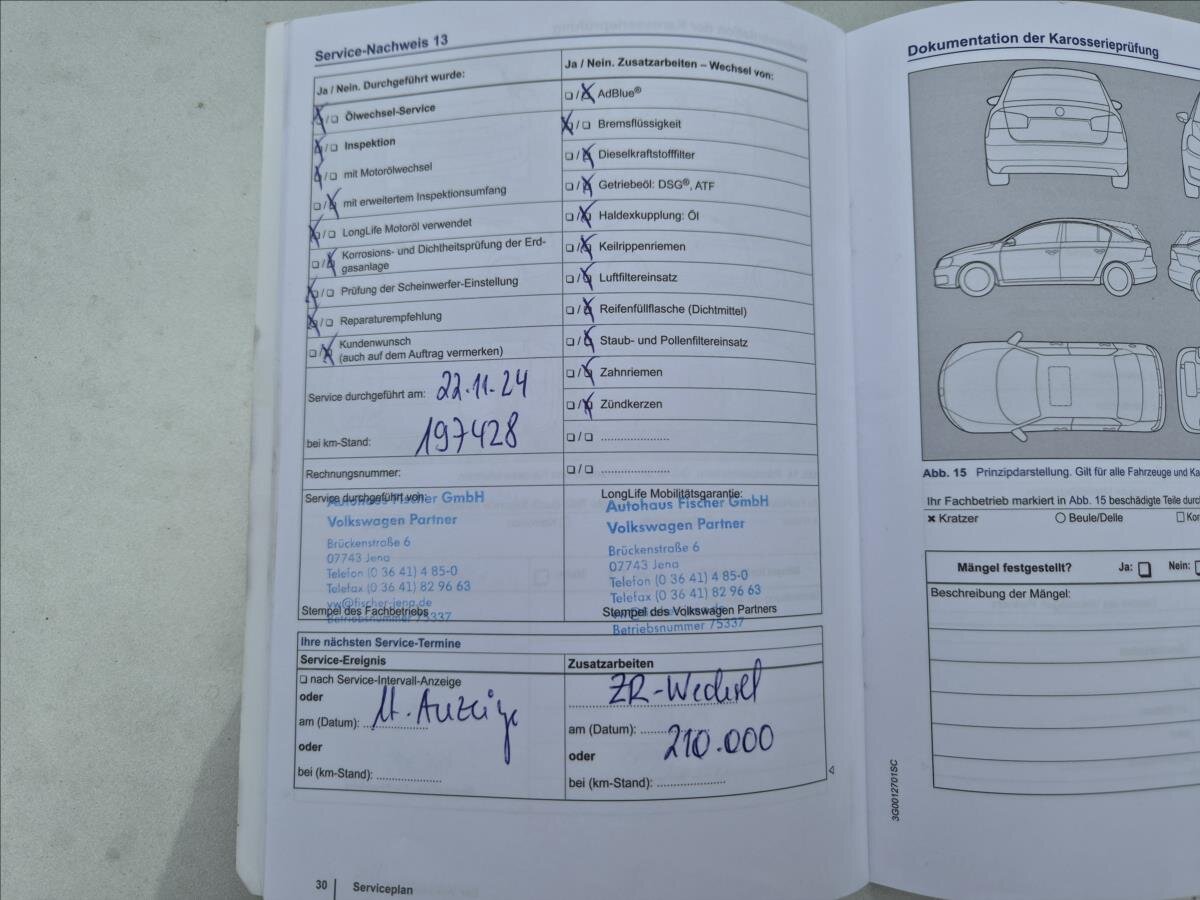 Service-Nachweis 13
Ja / Nein. Durchgeführt wurde:
☒/❏ Ölwechsel-Service
☒/❏ Inspektion
☒/❏ mit Motorölwechsel
❏/☒ mit erweitertem Inspektionsumfang
☒/❏ LongLife Motoröl verwendet
❏/☒ Korrosions- und Dichtheitsprüfung der Erd-
gasanlage
☒/❏ Prüfung der Scheinwerfer-Einstellung
☒/❏ Reparaturempfehlung
❏/☒ Kundenwunsch
(auch auf dem Auftrag vermerken)
Service durchgeführt am: 22.11.24
bei km-Stand: 197428
Rechnungsnummer:
Service durchgeführt von:
Autohaus Fischer GmbH
Volkswagen Partner
Brückenstraße 6
07743 Jena
Telefon (0 36 41) 4 85-0
Telefax (0 36 41) 82 96 63
vw@fischer-jena.de
Stempel des Fachbetriebs
Betriebsnummer 75337
Ja / Nein. Zusatzarbeiten – Wechsel von:
❏/☒ AdBlue®
☒/❏ Bremsflüssigkeit
❏/☒ Dieselkraftstofffilter
❏/☒ Getriebeöl: DSG®, ATF
❏/☒ Haldexkupplung: Öl
❏/☒ Keilrippenriemen
❏/☒ Luftfiltereinsatz
❏/☒ Reifenfüllflasche (Dichtmittel)
❏/☒ Staub- und Pollenfiltereinsatz
❏/☒ Zahnriemen
❏/☒ Zündkerzen
❏/❏ ......................
❏/❏ ......................
LongLife Mobilitätsgarantie:
Autohaus Fischer GmbH
Volkswagen Partner
Brückenstraße 6
07743 Jena
Telefon (0 36 41) 4 85-0
Telefax (0 36 41) 82 96 63
Stempel des Volkswagen Partners
Betriebsnummer 75337
Ihre nächsten Service-Termine
Service-Ereignis
❏ nach Service-Intervall-Anzeige
oder
am (Datum): lt. Anzeige
oder
bei (km-Stand): ....................
Zusatzarbeiten
ZR-Wechsel
am (Datum): ........
oder 210.000
bei (km-Stand): ......................
30 Serviceplan
Dokumentation der Karosserieprüfung
Abb. 15 Prinzipdarstellung. Gilt für alle Fahrzeuge und
Ihr Fachbetrieb markiert in Abb. 15 beschädigte Teile
✖ Kratzer ◯ Beule/Delle
Mängel festgestellt? Ja: ❏ Nein: ❏
Beschreibung der Mängel:
3G0012701SC